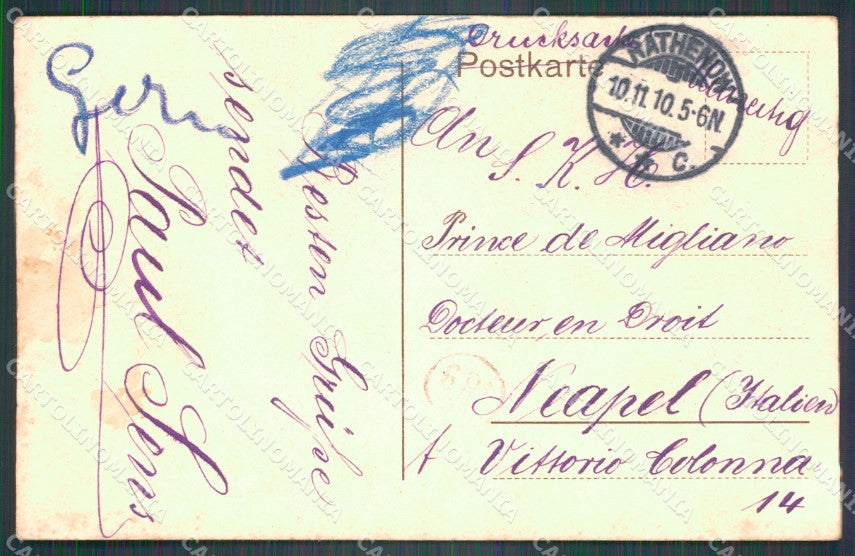 Drucksache
Postkarte
RATHENOW
10.11.10.5-6N.
* 1 c.
An S. K. H.
Prince de Migliano
Docteur en Droit
Neapel (Italien)
Vittorio Colonna
14
Besten Grüße
sendet
Paul
CARTOLINOMANIA